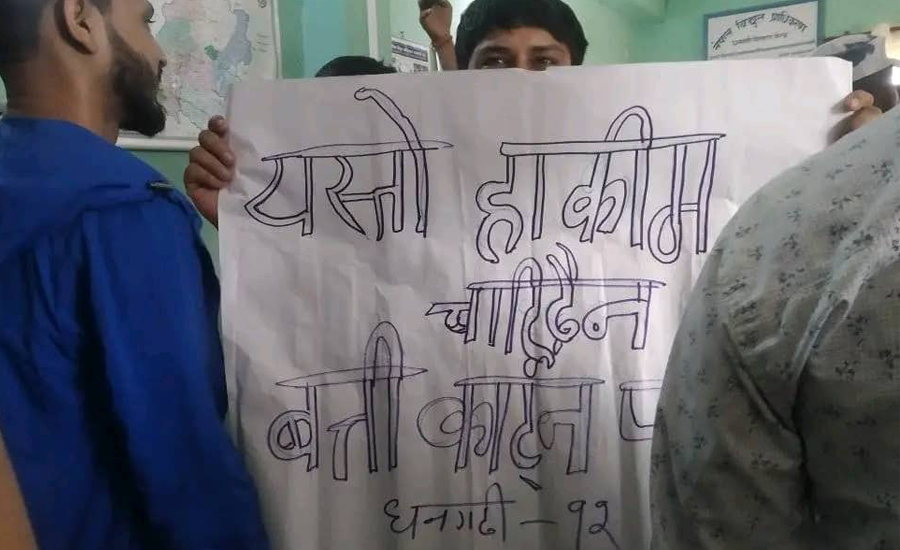 नेपाल विद्युत प्राधिकरण
यस्तो हाकीम
चाहिदैन
बत्ती काट्न प
धनगढी – १२